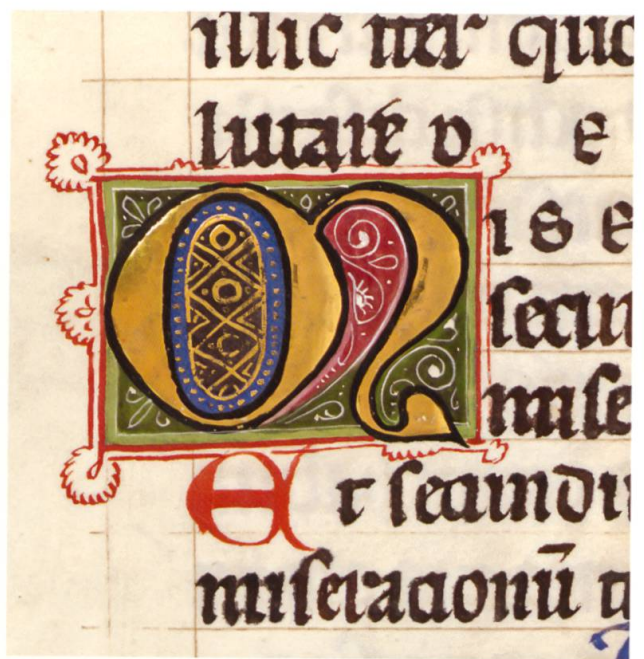 illic iter quo
lutare d e
M I S E
secun
mise
E t secundu
miseracionū t